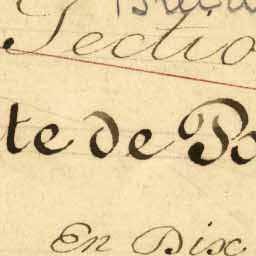 Sectio
te de Po
En Dix